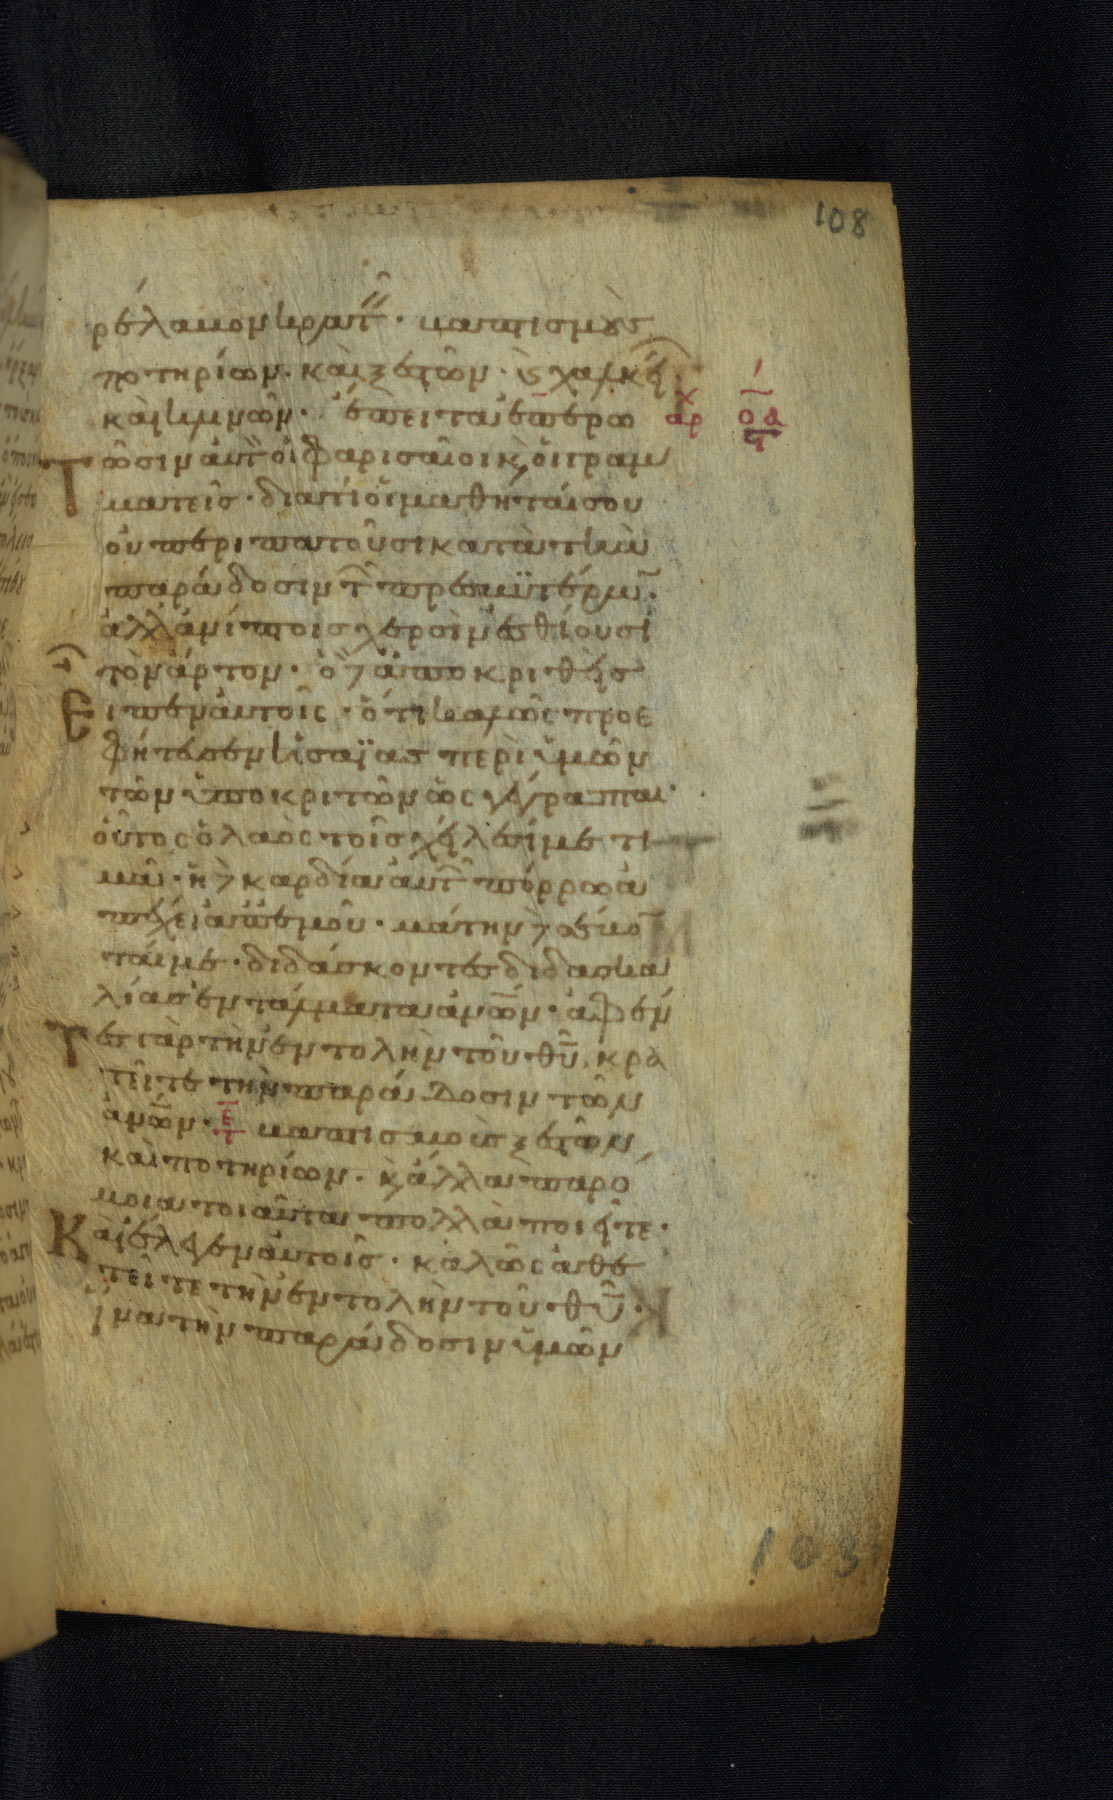 108
ρέλαβον κρατεῖ· βαπτισμοὺς
ποτηρίων· καὶ ξεστῶν· ϗ χαλκεί
καὶ κλινῶν· ἔπειτα ἐπερω
ἀρχ
οα
τῶσιν αὐτ οἱ φαρισαῖοι κ οἱ γραμ
ματεῖς· διατί οἱ μαθηταί σου
οὐ περιπατοῦσι κατὰ τὴν
παράδοσιν τ πρεσβϋτέρων·
ἀλλὰ ἀνίπτοις χερσὶν ἐσθίουσι
τὸν ἄρτον· ὁ δὲ ἀποκριθεὶς
Εἶπεν αὐτοῖς· ὅτι καλῶς προε
φήτευσεν ἡσαΐας περὶ ὑμῶν
τῶν ὑποκριτῶν ὡς γέγραπται·
οὗτος ὁ λαὸς τοῖς χείλεσί με τι
μᾶ· ἡ δὲ καρδία αὐτ πόρρω ἀ
πέχει ἀπ ἐμοῦ· μάτην δὲ σέβο
ταί με· διδάσκοντες διδασκα
λίας ἐντάλματα ἀνων· ἀφέν
τες γὰρ τὴν ἐντολὴν τοῦ θυ κρα
τεῖτε τὴν παράδοσιν τῶν
ἀνων· βαπτισμοὺς ξεστῶν
καὶ ποτηρίων· κ ἄλλα παρό
μοια τοιαῦτα πολλὰ ποιεῖτε·
Καὶ ἔλεγεν αὐτοῖς· καλῶς ἀθε
τεῖτε τὴν ἐντολὴν τοῦ θυ·
ἵνα τὴν παράδοσιν ὑμῶν
103